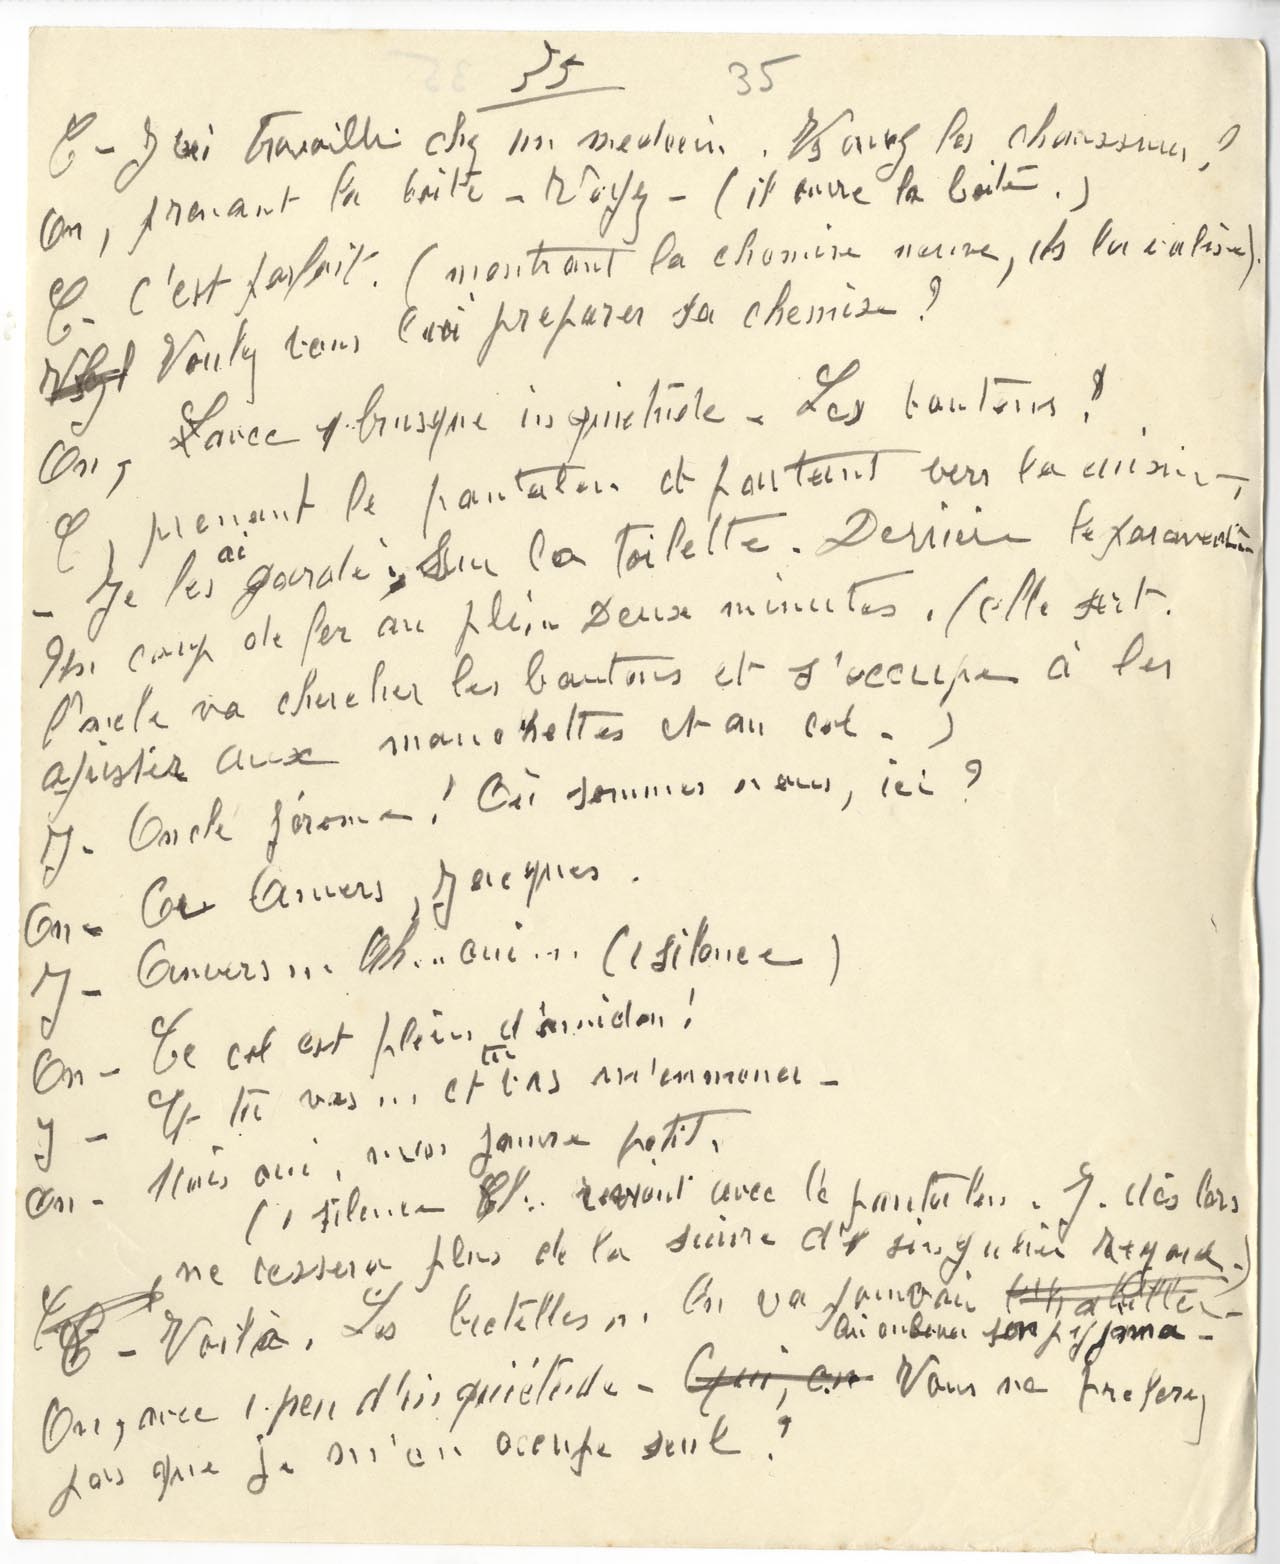 35 35
C - J'ai travaillé chez un medecin. Vs avez les chaussures ?
On, prenant la boîte - Voyez - (il ouvre la boîte.)
C - C'est parfait. (montrant la chemise neuve, ds la valise).
Voulez vous lui préparer sa chemise ?
On, avec 1 brusque inquiétude - Les boutons ?
C, prenant le pantalon et partant vers la cuisine -
- Je les ai gardé, Sur la toilette. Derrière le paravent -
Un coup de fer au pli, Deux minutes. (elle sort.
l'oncle va chercher les boutons et s'occupe à les
ajuster aux manchettes et au col. -)
J - Oncle Jérome ! Où sommes nous, ici ?
On - A Anvers, Jacques.
J - Anvers ... Ah ... oui ... (1 silence)
On - Ce col est plein d'amidon !
J - Et tu vas ... et tu vas m'emmener -
On - Mais oui, mon pauvre petit.
(1 silence Cl.. revient avec le pantalon. J. dès lors
ne cessera plus de la suivre d'1 singulier regard.)
C - Voilà. Les bretelles ... On va pouvoir l'habiller -
lui enlever son pyjama -
On, avec 1 peu d'inquiétude - Oui, on Vous ne préférez
pas que je m'en occupe seul ?